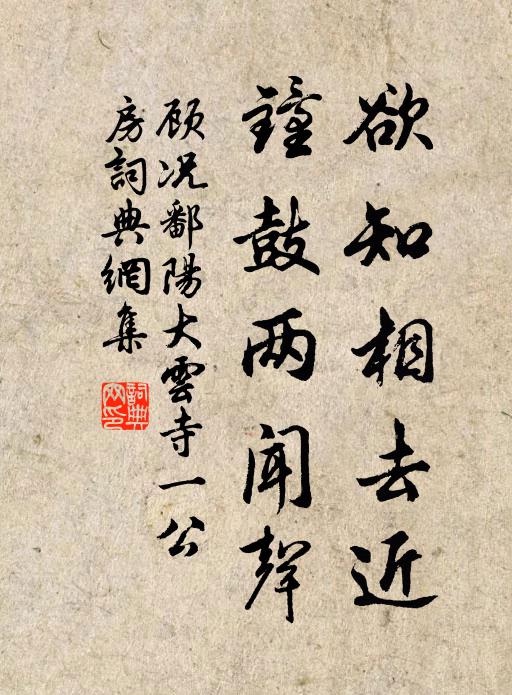 欲知相去近
鐘鼓两闻聲
顾况鄱陽大雲寺一公
房詞典網集
詞典网印